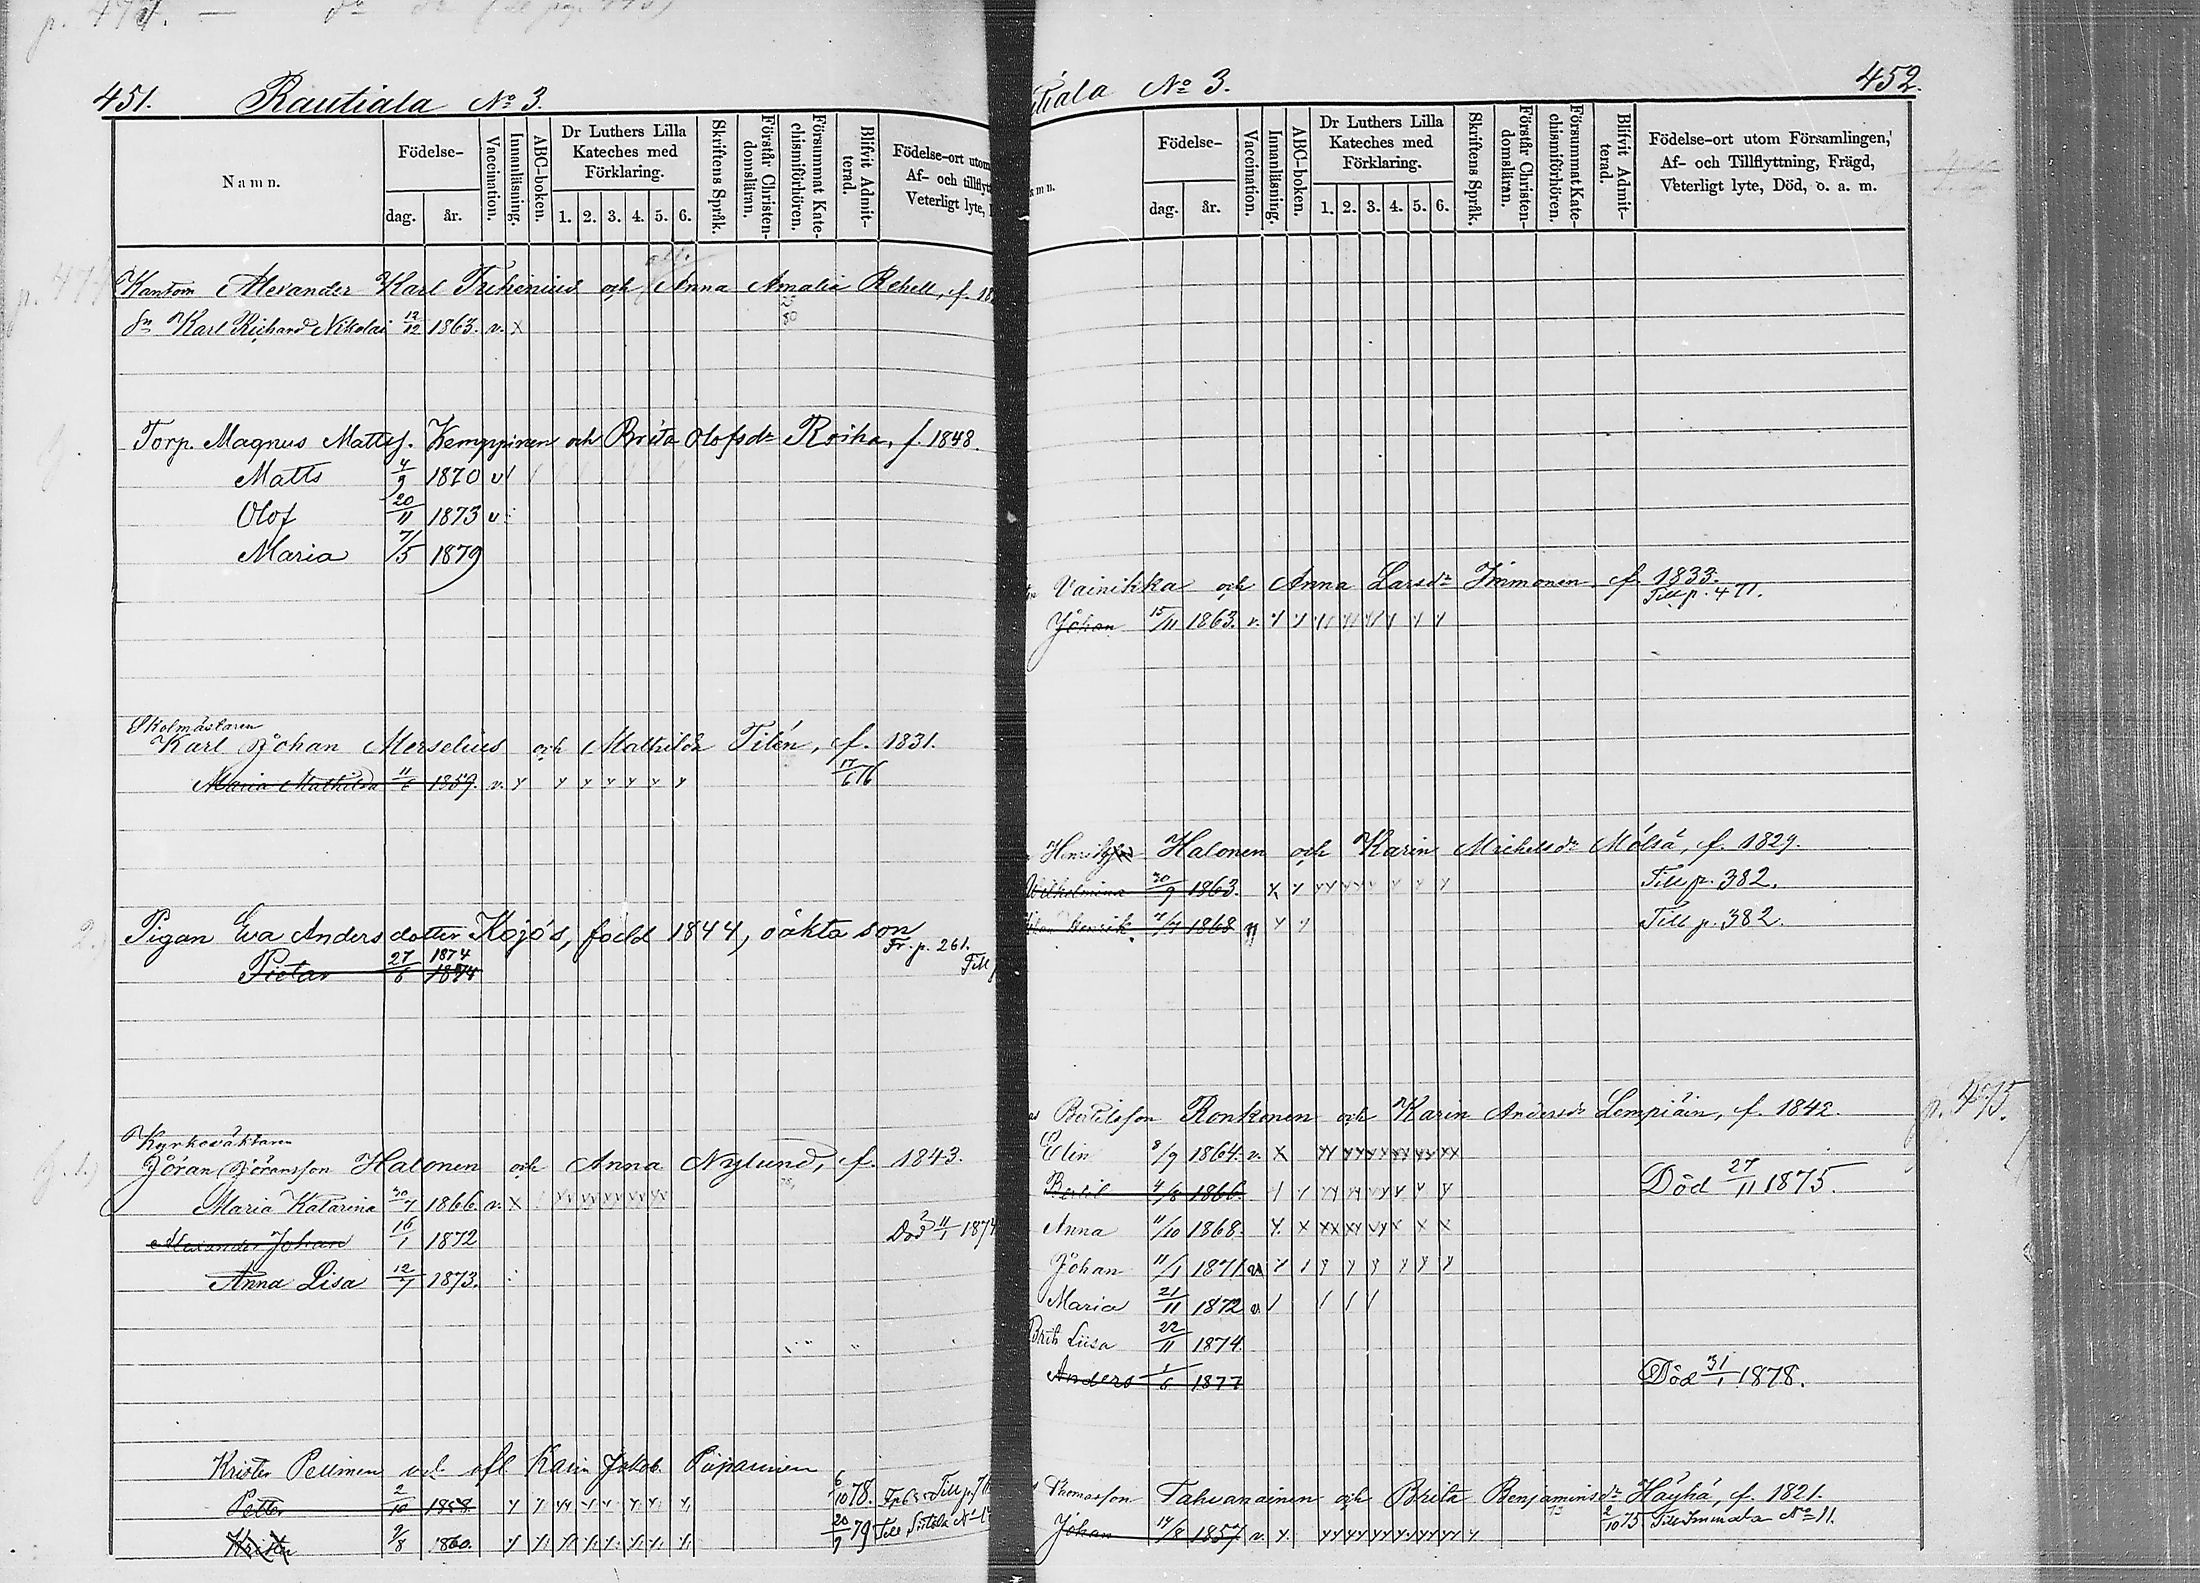 451. Rautiala No 3.
Namn.
Födelse-
dag. år.
Vaccination.
Innanläsning.
ABC-boken.
Dr Luthers Lilla
Kateches med
Förklaring.
1. 2. 3. 4. 5. 6.
Skriftens Språk.
Förstår Christen-
domsläran.
Försummat Kate-
chismiförhören.
Blifvit Admit-
terad.
Födelse-ort utom
Af- och tillflytt
Veterligt lyte,
Alexander Karl och Anna Amalia Rehell, f. 18
Karl Richard Nikolai 12/12 1863. v. x
Torp. Magnus Mattsf. Kemppinen och Brita Olofsdr Roiha, f. 1848.
Matts 4/9 1870 v
Olof 20/11 1873 v
Maria 7/5 1879
Skolmästaren
Karl Johan Merselius och Mathilda Tilén, f. 1831.
Maria Mathilda 11/6 1859. v. 17/6 76
Pigan Eva Andersdotter Kojo's, född 1844, oäkta son
Fr. p. 261.
Till
Pietar 27/6 1874 1874
Kyrkoväktaren
Göran Göransson Halonen och Anna Nylund, f. 1843.
Maria Katarina 30/7 1866. v. x
Alexander Johan 16/1 1872 Död 11/1 1874
Anna Lisa 12/7 1873.
Krister Pellinen Karin Jakob.
Petter 2/10 1858. 6/10 78.
Krister 2/8 1860. 20/9 79 Till
tiala No 3. 452.
amn.
Födelse-
dag. år.
Vaccination.
Innanläsning.
ABC-boken.
Dr Luthers Lilla
Kateches med
Förklaring.
1. 2. 3. 4. 5. 6.
Skriftens Språk.
Förstår Christen-
domsläran.
Försummat Kate-
chismiförhören.
Blifvit Admit-
terad.
Födelse-ort utom Församlingen,
Af- och Tillflyttning, Frägd,
Veterligt lyte, Död, o. a. m.
Vainikka och Anna Larsdr Immonen f. 1833.
Till p. 471.
Johan 15/11 1863. v.
Halonen och Karin Michelsdr Mölsä, f. 1829.
Wilhelmina 30/9 1863. Till p. 382.
Henrik 1868 Till p. 382.
Bertilsson Ronkonen och Karin Andersdr Lempiäin, f. 1842.
p. 475
Elin 8/9 1864. v. x
Bertil 4/8 1866. Död 27/11 1875.
Anna 11/10 1868.
Johan 11/1 1871
Maria 21/11 1872 v.
Brita Liisa 22/11 1874
Anders 1/6 1877 Död 31/1 1878.
Thomasson Tahvanainen och Brita Benjaminsdr Häyhä, f. 1821.
Johan 14/8 1857 v. 2/10 75 Till Immala No 11.